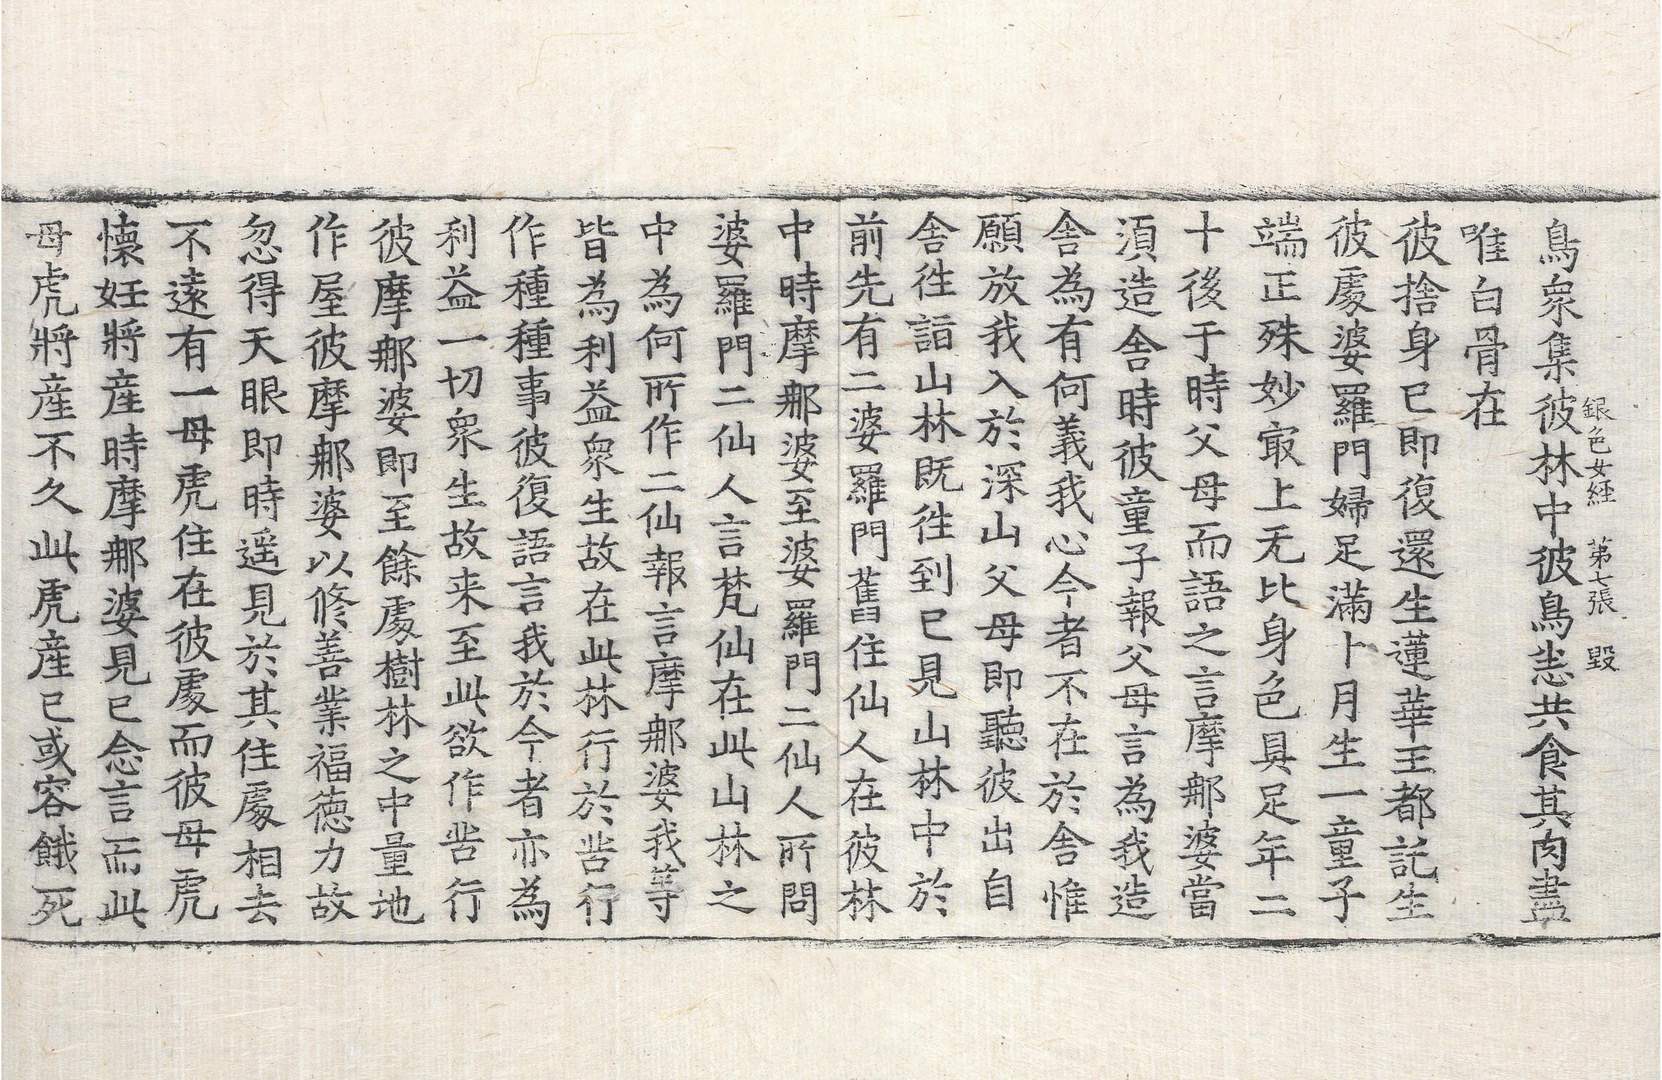 銀色女経 第七張 毀
鳥衆集彼林中彼鳥悉共食其肉盡
唯白骨在
彼捨身已即復還生蓮華王都託生
彼處婆羅門婦足滿十月生一童子
端正殊妙㝡上无比身色具足年二
十後于時父母而語之言摩那婆當
湏造舎時彼童子報父母言為我造
舎為有何義我心今者不在於舎惟
願放我入於深山父母即聽彼出自
舎徃詣山林既徃到已見山林中於
前先有二婆羅門舊住仙人在彼林
中時摩那婆至婆羅門二仙人所問
婆羅門二仙人言梵仙在此山林之
中為何所作二仙報言摩那婆我等
皆為利益衆生故在此林行於苦行
作種種事彼復語言我於今者亦為
利益一切衆生故来至此欲作苦行
彼摩那婆即至餘處樹林之中量地
作屋彼摩那婆以修善業福徳力故
忽得天眼即時遥見於其住處相去
不遠有一母虎住在彼處而彼母虎
懐妊將産時摩那婆見已念言而此
母虎將産不久此虎産已或容餓死